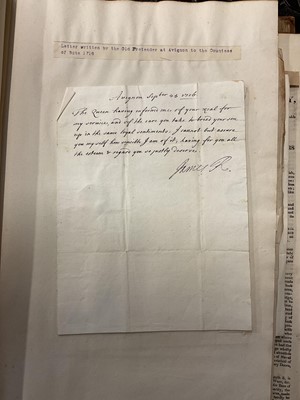 Letter written by the Old Pretender at Avignon to the Countess
of Bute 1716
Avignon Septber 24 1716.
The Queen having informed me of your zeal for
my service, and of the care you take to breed your son
up in the same loyal sentiments, I cannot but assure
you my self how sensible I am of it, having for you all
the esteem & regard you so justly deserve.
James R.